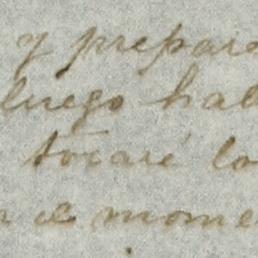 y prepara
luego hab
tocaré lo
n el mome